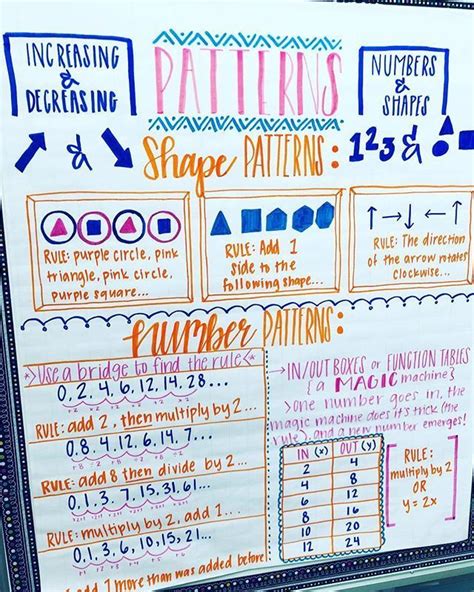 INCREASING
&
DECREASING
PATTERNS
NUMBERS
&
SHAPES
&
Shape PATTERNS:
123 &
RULE: purple circle, pink
triangle, pink circle,
purple square...
RULE: Add 1
side to the
following shape...
↑→↓←↑
RULE: The direction
of the arrow rotates
clockwise...
number PATTERNS:
Use a bridge to find the rule
0, 2, 4, 6, 12, 14, 28...
+2 x2 +2 x2 +2 x2
RULE: add 2, then multiply by 2...
0, 8, 4, 12, 6, 14, 7...
+8 ÷2 +8 ÷2 +8 ÷2
RULE: add 8 then divide by 2...
0, 1, 3, 7, 15, 31, 61...
RULE: multiply by 2, add 1...
0, 1, 3, 6, 10, 15, 21...
+1 +2 +3 +4 +5 +6
add 1 more than was added before
→ IN/OUT BOXES or FUNCTION TABLES
{a MAGIC machine}
> one number goes in, the
magic machine does it's trick (the
rule), and a new number emerges!
IN (x) OUT (y)
2 4
4 8
6 12
8 16
10 20
12 24
RULE:
multiply by 2
OR
y = 2x